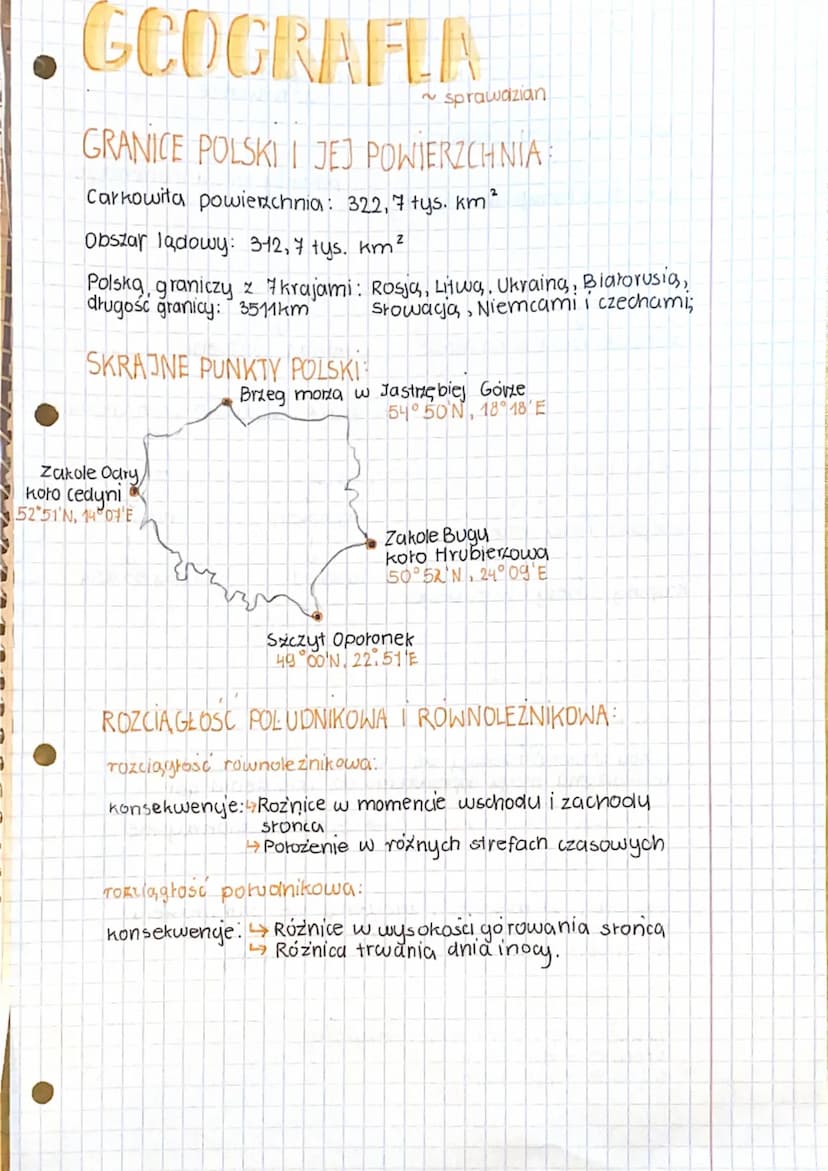 GEOGRAFIA
~ sprawdzian
GRANICE POLSKI I JEJ POWIERZCHNIA:
Całkowita powierzchnia: 322,7 tys. km²
Obszar lądowy: 312,7 tys. km²
Polska graniczy z 7 krajami: Rosją, Litwą, Ukrainą, Białorusią,
długość granicy: 3511km Słowacją, Niemcami i czechami;
SKRAJNE PUNKTY POLSKI:
Brzeg morza w Jastrzębiej Górze
54°50'N, 18°18'E
Zakole Odry
koło cedyni
52°51'N, 14°07'E
Zakole Bugu
koło Hrubierzowa
50°52'N, 24°09'E
Szczyt Opołonek
49°00'N, 22°51'E
ROZCIĄGŁOŚĆ POŁUDNIKOWA I RÓWNOLEŻNIKOWA:
rozciągłość równoleżnikowa:
konsekwencje: ↳ Różnice w momencie wschodu i zachody
słońca
↳ Położenie w różnych strefach czasowych
rozciągłość południkowa:
konsekwencje: ↳ Różnice w wysokości górowania słońca
↳ Różnica trwania dnia i nocy.